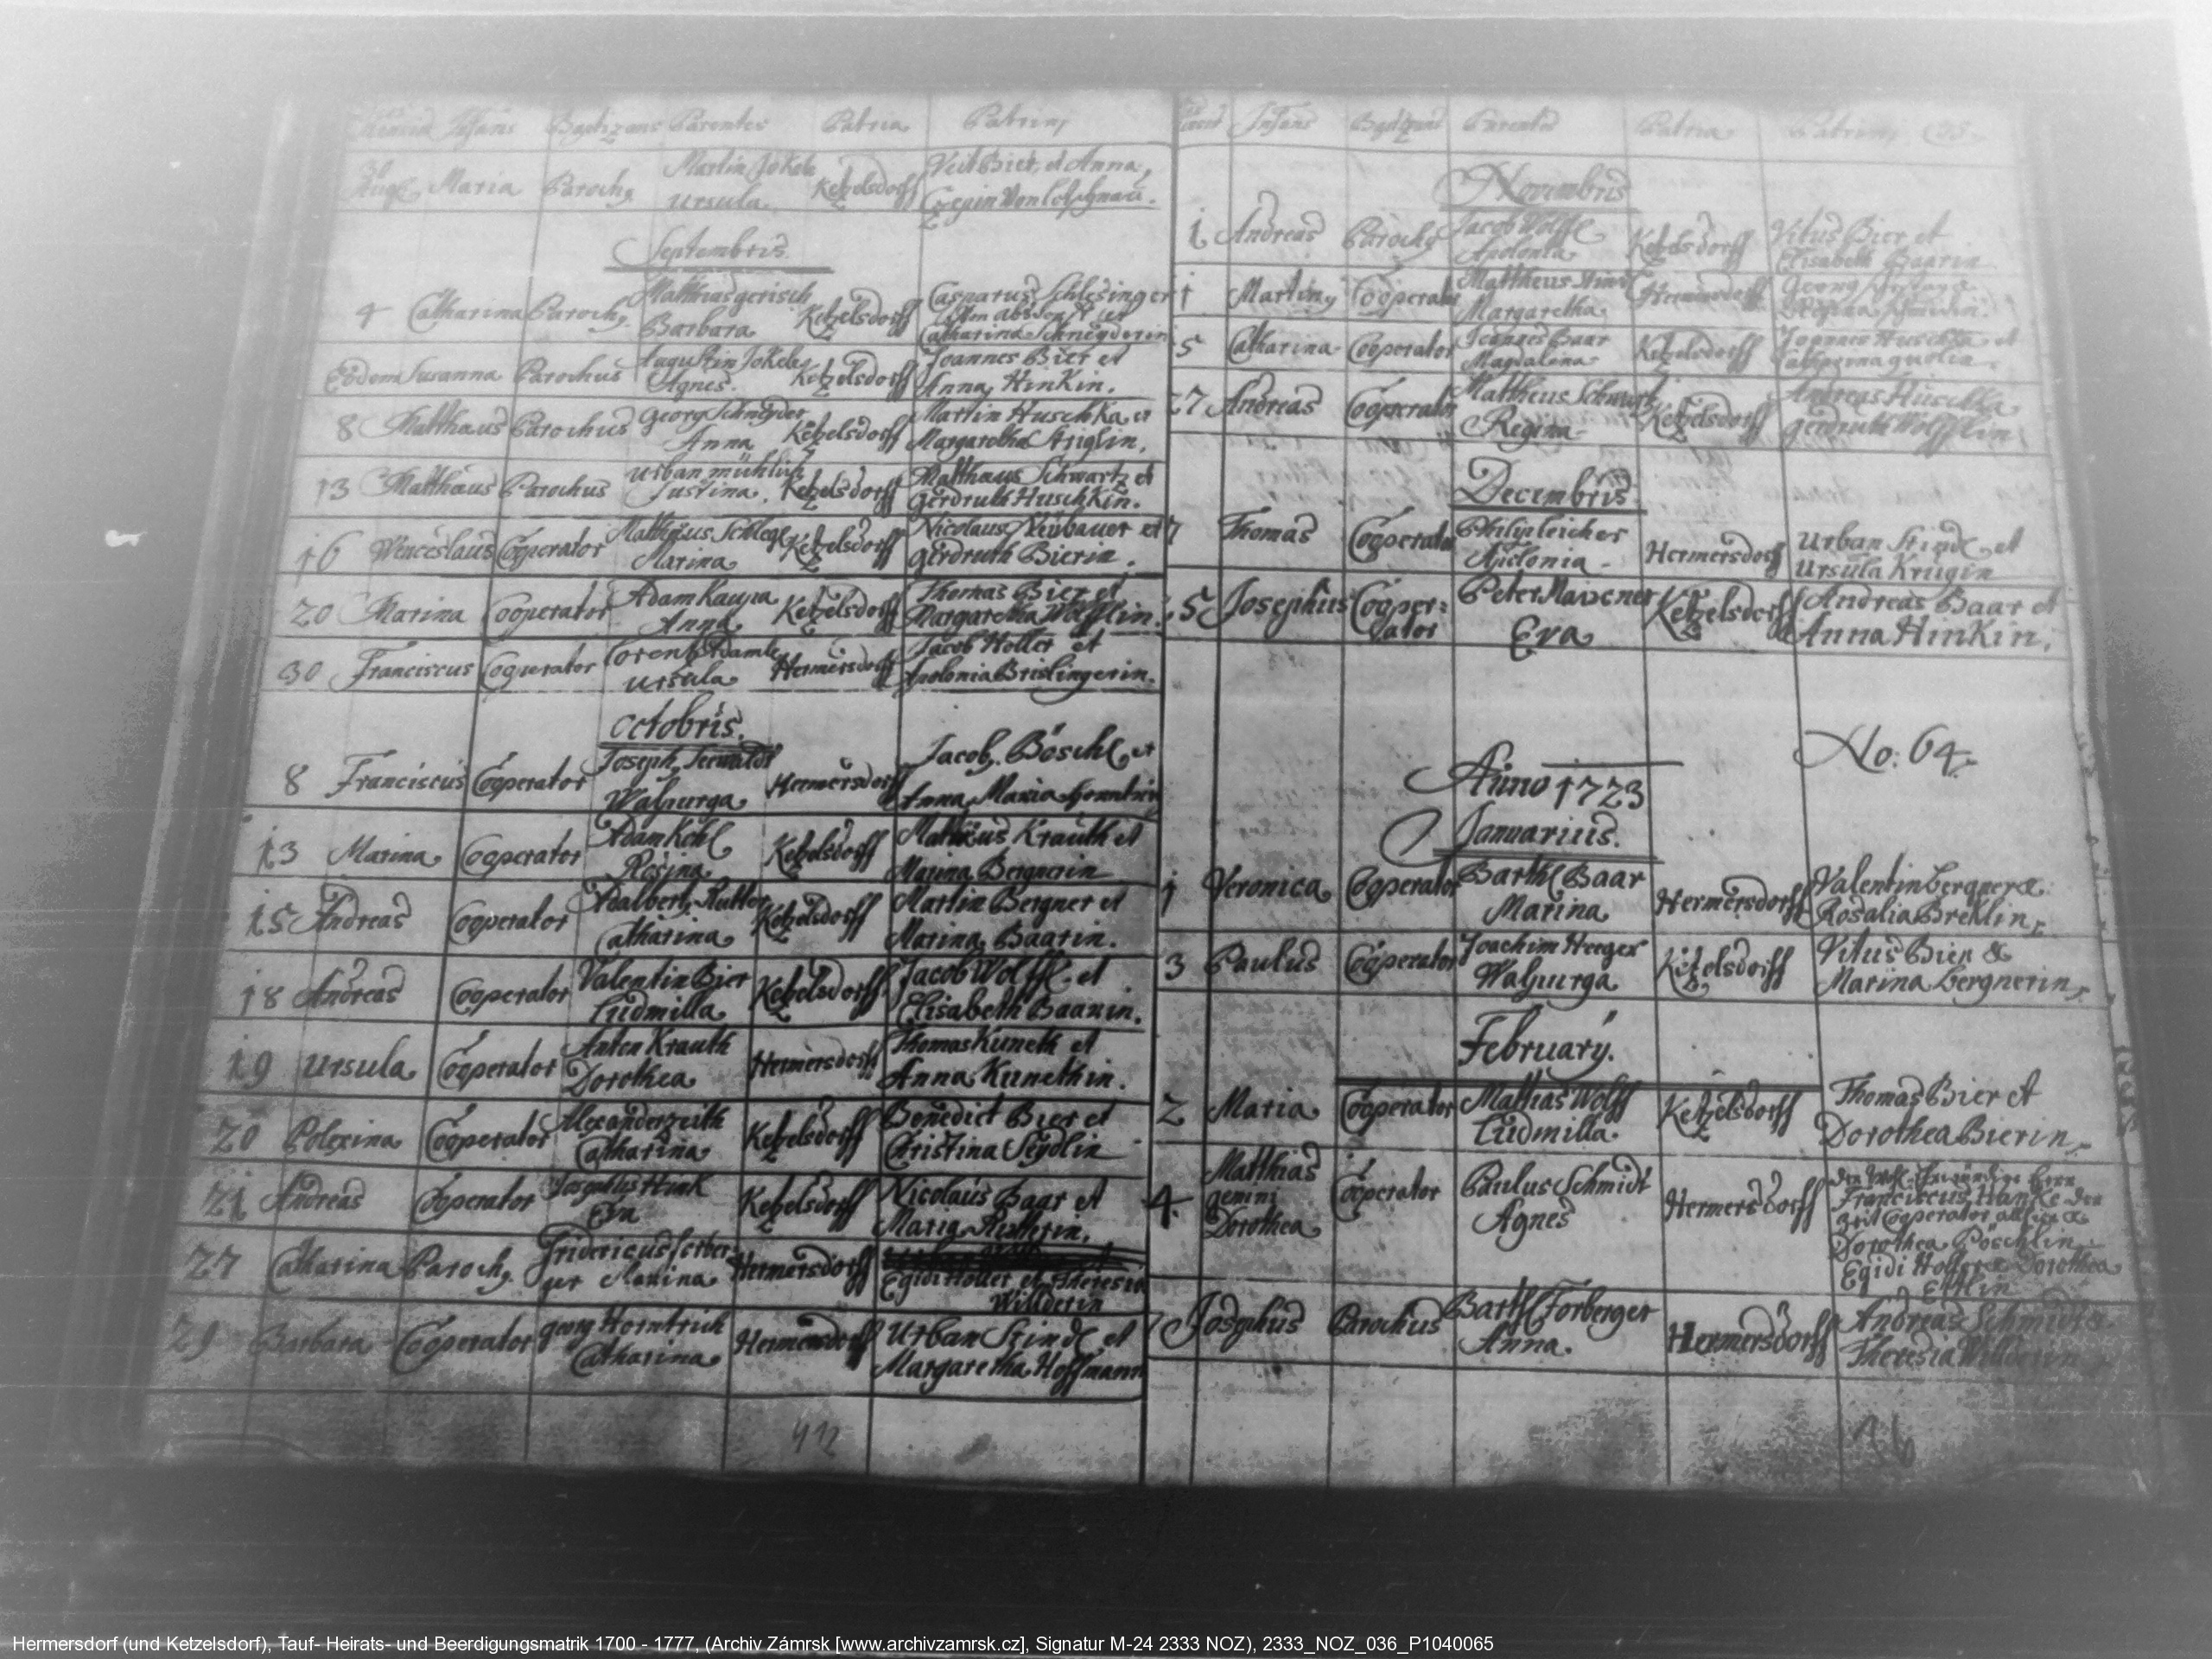 Infans Baptizans Parentes Patria Patrini
30 Aug. Maria Paroch9 Martin Jokele Ketzelsdorff Veit Bier, et Anna
Ursula
Septembris.
4 Catharina Paroch9 Matthias gerisch Ketzelsdorff Casparus Schlesinger
Barbara Catharina Schneyderin
Eodem Susanna Parochus Augustin Jokele Ketzelsdorff Joannes Bier et
Agnes. Anna Hinkin.
8 Matthaus Parochus Georg Schneyder Ketzelsdorff Martin Huschka et
Anna Margaretha
13 Matthaus Parochus Urban mühlich Ketzelsdorff Matthaus Schwartz et
Justina. Gerdruth Huschkin.
16 Wenceslaus Cooperator Matthæus Schlegl Ketzelsdorff Nicolaus Neubauer et
Marina Gerdruth Bierin.
20 Marina Cooperator Adam Kaupa Ketzelsdorff Thomas Bier et
Anna Margaretha Wölfflin.
30 Franciscus Cooperator Lorentz Adamle Hermersdorff Jacob Holler et
Ursula Apolonia Brislingerin.
Octobris.
8 Franciscus Cooperator Joseph Hermersdorff Jacob Böschl et
Walpurga Anna Maria
13 Marina Cooperator Adam Kohl Ketzelsdorff Mathæus Krauth et
Rosina Marina Bergnerin
15 Andreas Cooperator Adalbert Rutter Ketzelsdorff Martin Bergner et
Catharina Marina Baarin.
18 Andreas Cooperator Valentin Bier Ketzelsdorff Jacob Wolffl et
Ludmilla Elisabeth Baarin.
19 Ursula Cooperator Anton Krauth Hermersdorff Thomas Kuneth et
Dorothea Anna Kunethin.
20 Polexina Cooperator Alexander zeith Ketzelsdorff Benedict Bier et
Catharina Christina Seydlin
21 Andreas Cooperator Josephus Hink Ketzelsdorff Nicolaus Baar et
Eva Maria
27 Catharina Paroch9 Fridericus Forber- Hermersdorff Egidi Holler et Theresia
ger Marina Willderin
29 Barbara Cooperator georg Horntrich Hermersdorff Urban Stindl et
Catharina Margaretha Hoffmann
412
Infans Baptizans Parentes Patria Patrini
Novembris
1 Andreas Paroch9 Jacob Wolffl Ketzelsdorff Vitus Bier et
Apolonia Elisabeth Baarin
1 Martin9 Cooperator Mattheus Hermersdorff Georg
Margaretha Regina
5 Catharina Cooperator Joannes Baar Ketzelsdorff Joannes Huschka et
Magdalena
27 Andreas Cooperator Mattheus Schwartz Ketzelsdorff Andreas Huschka
Regina Gerdruth Wölfflin
Decembris
7 Thomas Cooperator Philip leicher Hermersdorff Urban Stindl et
Apolonia Ursula Krugin
5 Josephus Cooper= Peter Ketzelsdorff Andreas Baar et
ator Eva Anna Hinkin.
No: 64.
Anno 1723
Januarius.
1 Veronica Cooperator Barthl Baar Hermersdorff Valentin bergner &
Marina Rosalia Breklin
3 Paulus Cooperator Joachim Heeger Ketzelsdorff Vitus Bier &
Walpurga Marina bergnerin
February.
2 Maria Cooperator Mathias Wolff Ketzelsdorff Thomas Bier et
Ludmilla Dorothea Bierin
4. Matthias Cooperator Paulus Schmidt Hermersdorff
gemini Agnes Franciscus Hanke der
Dorothea Zeit Cooperator allhier &
Dorothea Poschlin
Egidi Holler & Dorothea
Ettlin
7 Josephus Parochus Barthl Forberger Hermersdorff Andreas Schmidt &
Anna. Theresia Willderin
36
Hermersdorf (und Ketzelsdorf), Tauf- Heirats- und Beerdigungsmatrik 1700 - 1777, (Archiv Zámrsk [www.archivzamrsk.cz], Signatur M-24 2333 NOZ), 2333_NOZ_036_P1040065